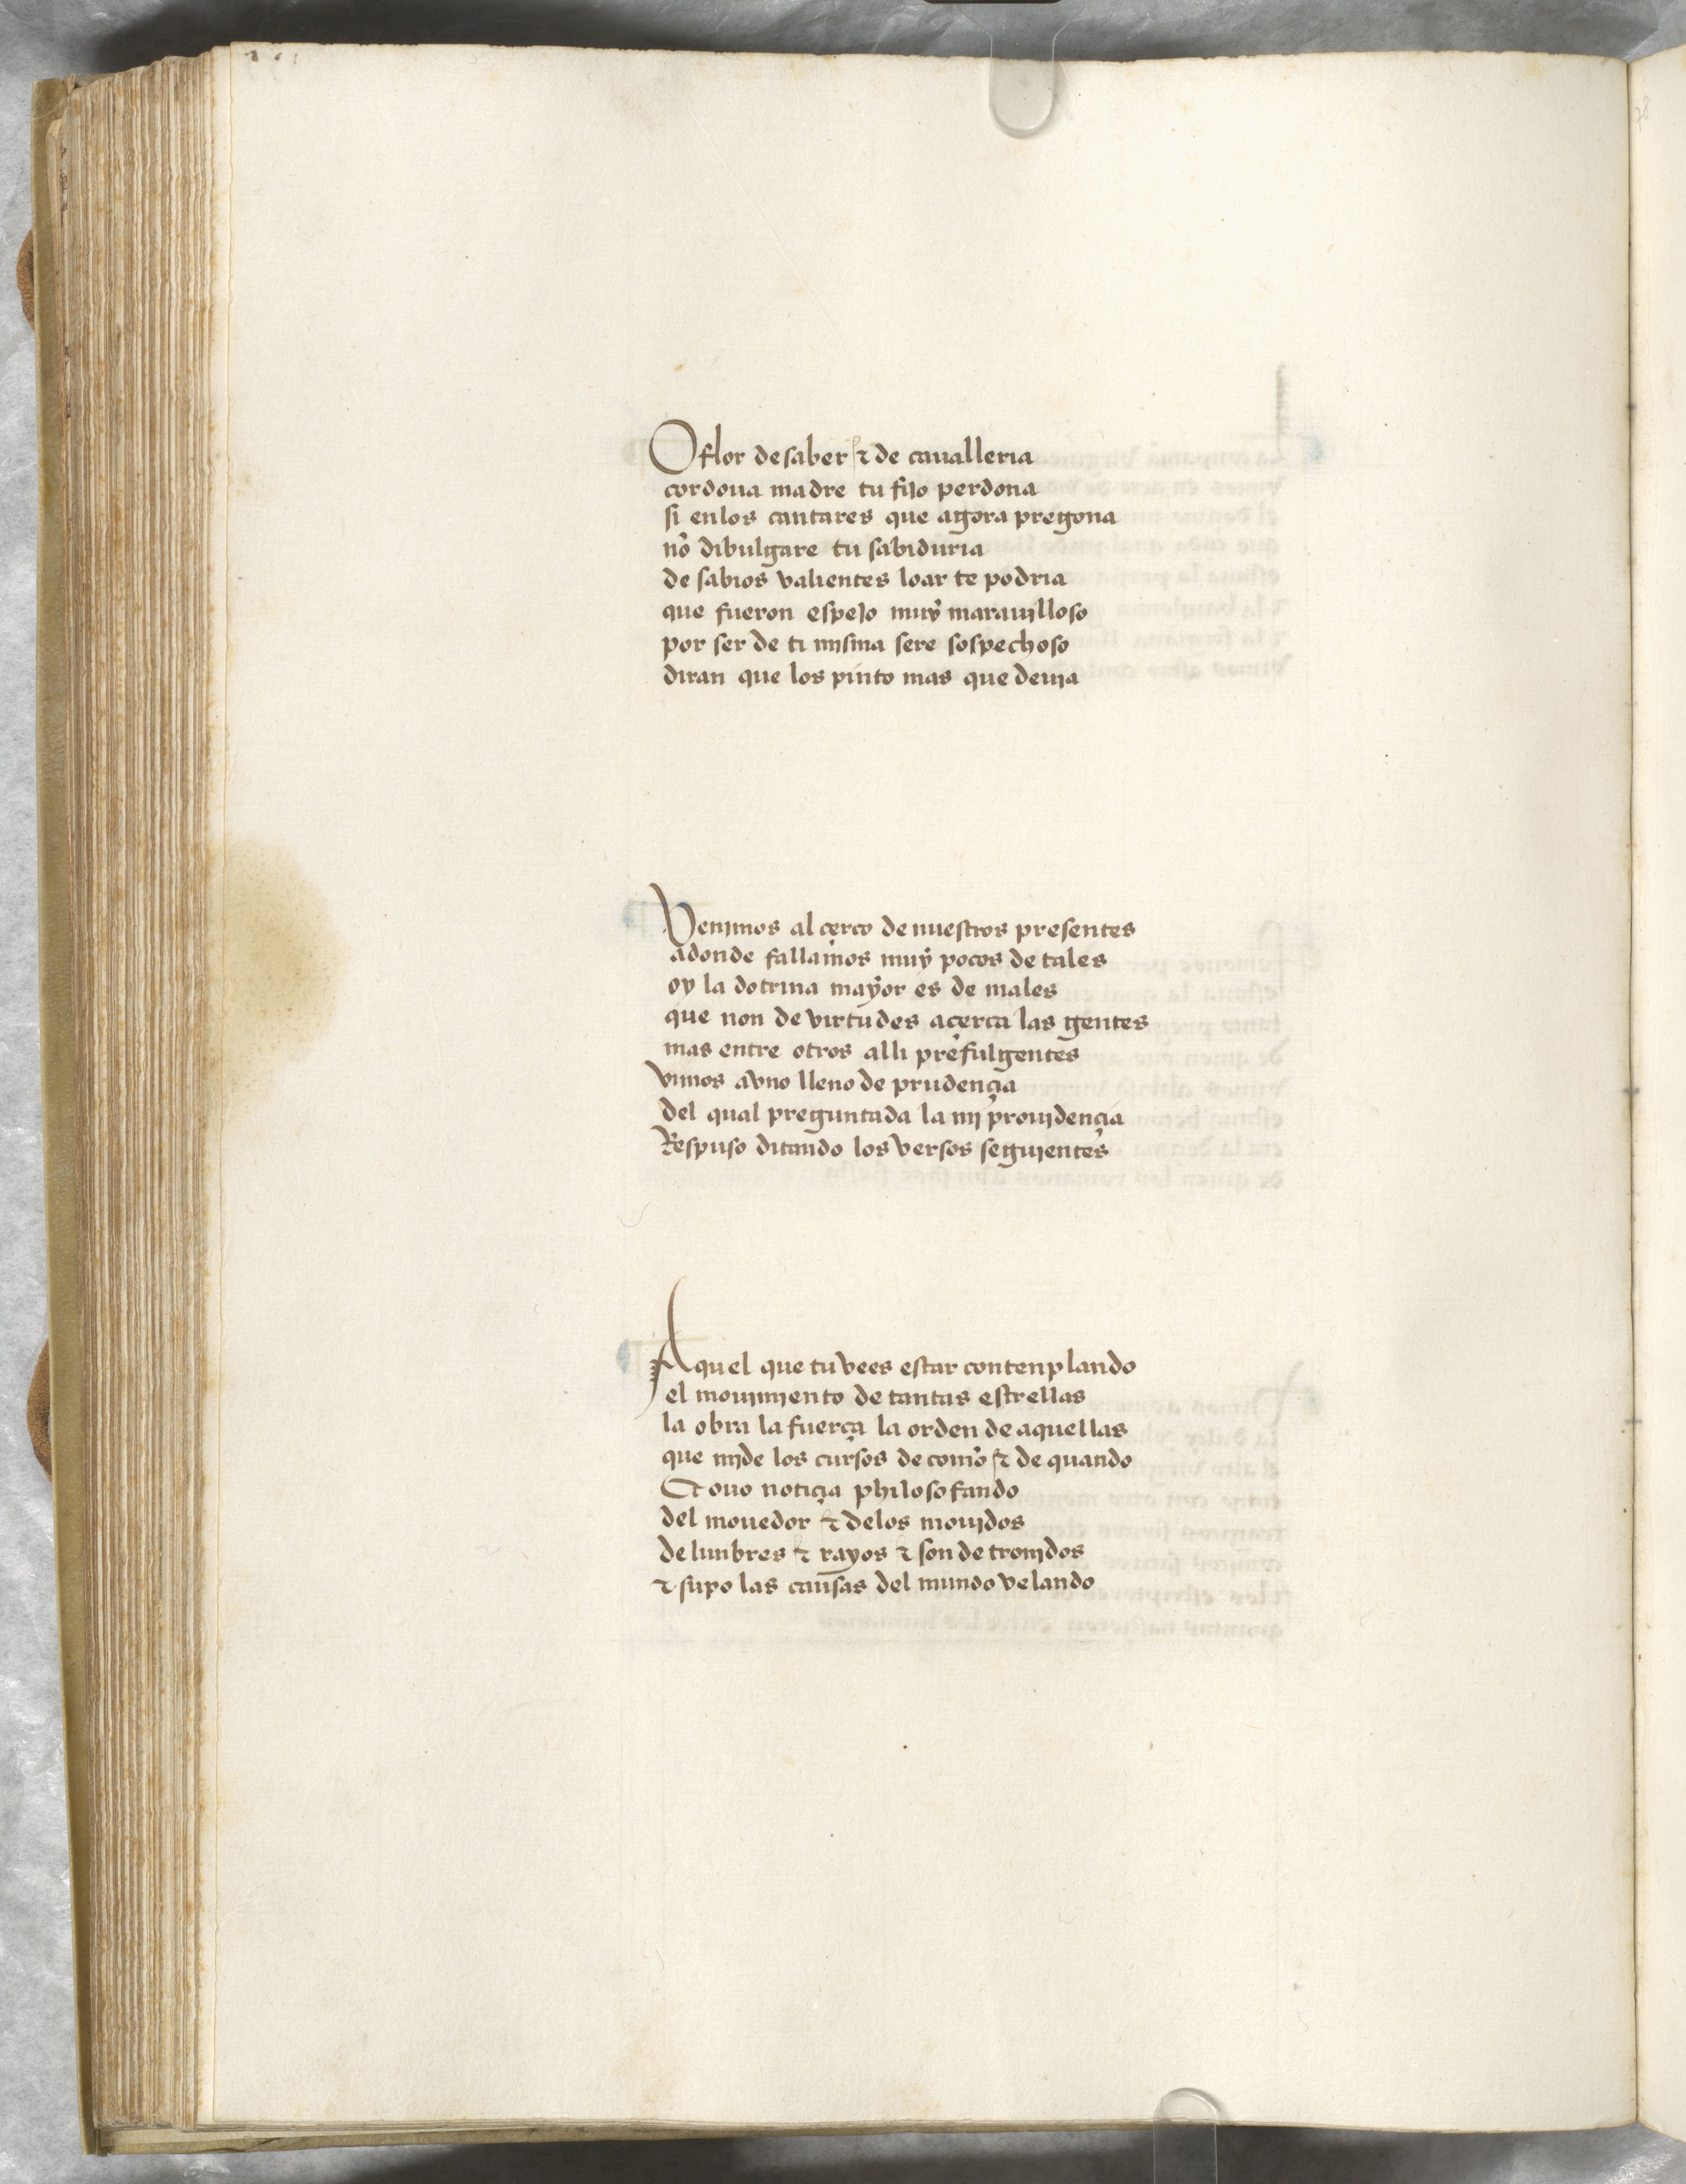 O flor de saber & de caualleria
cordoua madre tu fijo perdona
si enlos cantares que agora pregona
nõ dibulgare tu sabiduria
de sabios valientes loar te podria
que fueron espejo muy marauilloso
por ser de ti misma sere sospechoso
diran que los pinto mas que deuia
Venimos al çerco de nuestros presentes
adonde fallamos muy pocos de tales
oy la dotrina mayor es de males
que non de virtudes açerca las gentes
mas entre otros alli prefulgentes
vimos avno lleno de prudençia
del qual preguntada la mi prouidençia
Respuso ditando los versos seguientes
Aquel que tu vees estar contenplando
el mouimiento de tantas estrellas
la obra la fuerça la orden de aquellas
que mide los cursos de como & de quando
Et ouo notiçia philosofando
del mouedor & delos mouidos
de lunbres & rayos & son de tronidos
& supo las causas del mundo velando
78